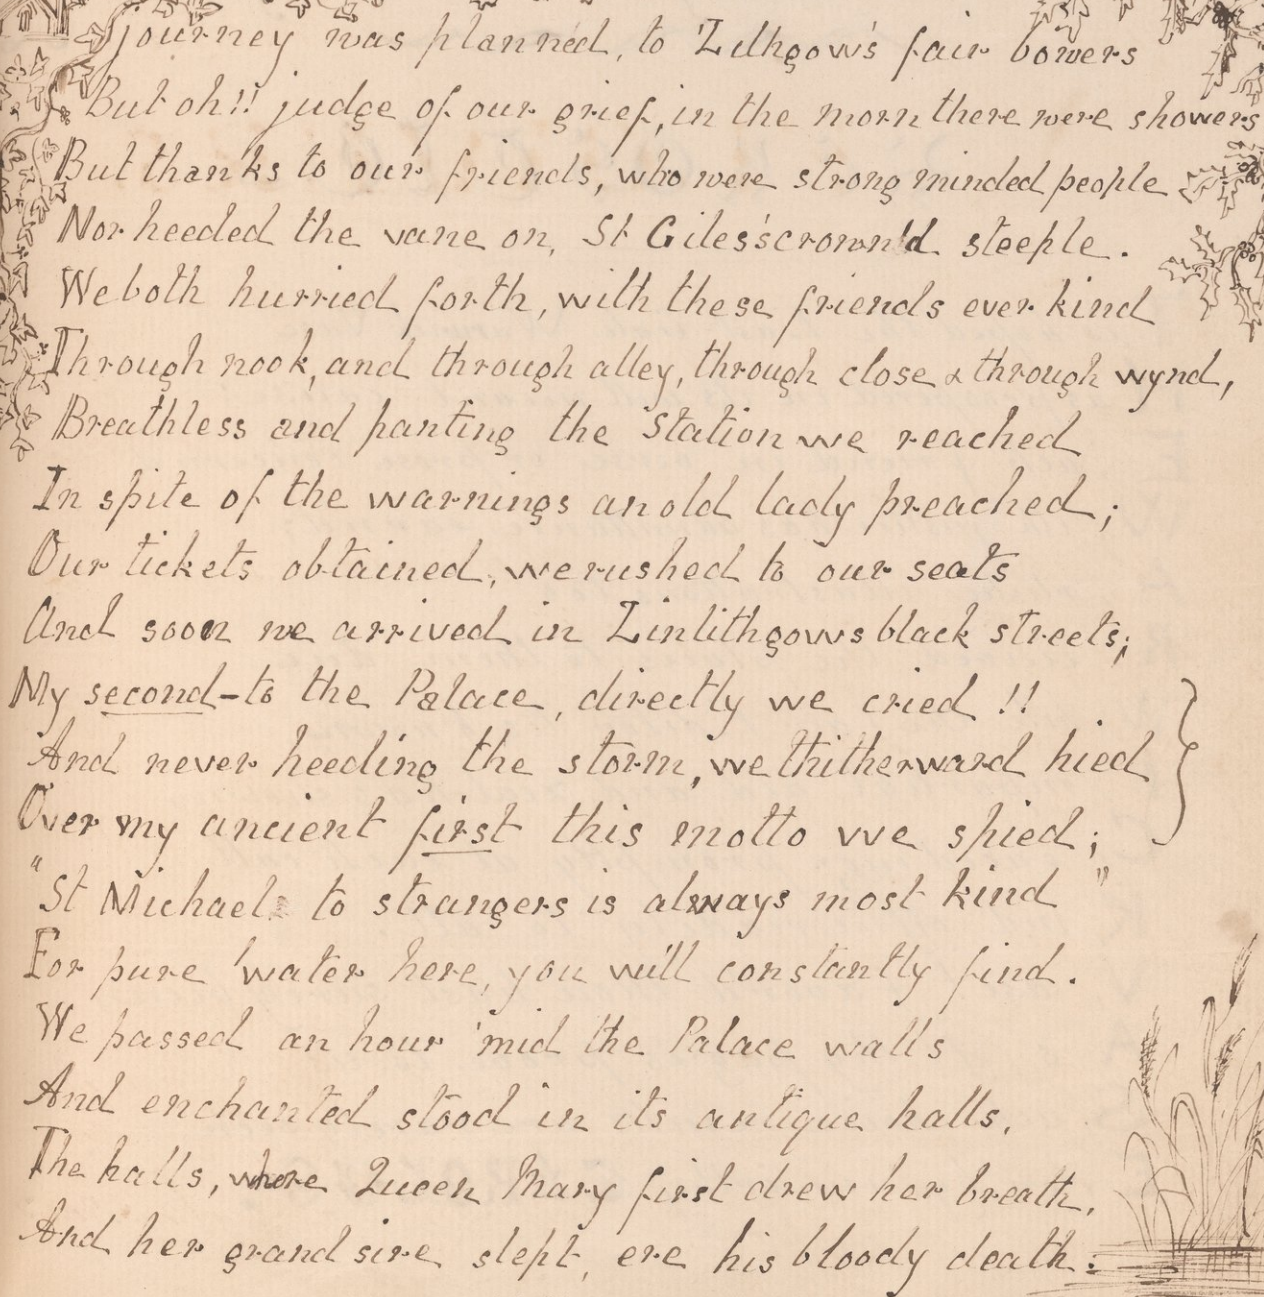 journey was planned, to 'Lithgow's fair bowers
But oh!! judge of our grief, in the morn there were showers
But thanks to our friends, who were strong minded people
Nor heeded the vane on, St Giles's crown'd steeple.
We both hurried forth, with these friends ever kind
Through nook, and through alley, through close & through wynd,
Breathless and panting the Station we reached
In spite of the warnings an old lady preached;
Our tickets obtained, we rushed to our seats
And soon we arrived in Linlithgows black streets;
My second - to the Palace, directly we cried!!
And never heeding the storm, we thitherward hied
Over my ancient first this motto we spied;
"St Michael to strangers is always most kind"
For pure water here, you will constantly find.
We passed an hour 'mid the Palace walls
And enchanted stood in its antique halls,
The halls, where Queen Mary first drew her breath,
And her grandsire slept, ere his bloody death: